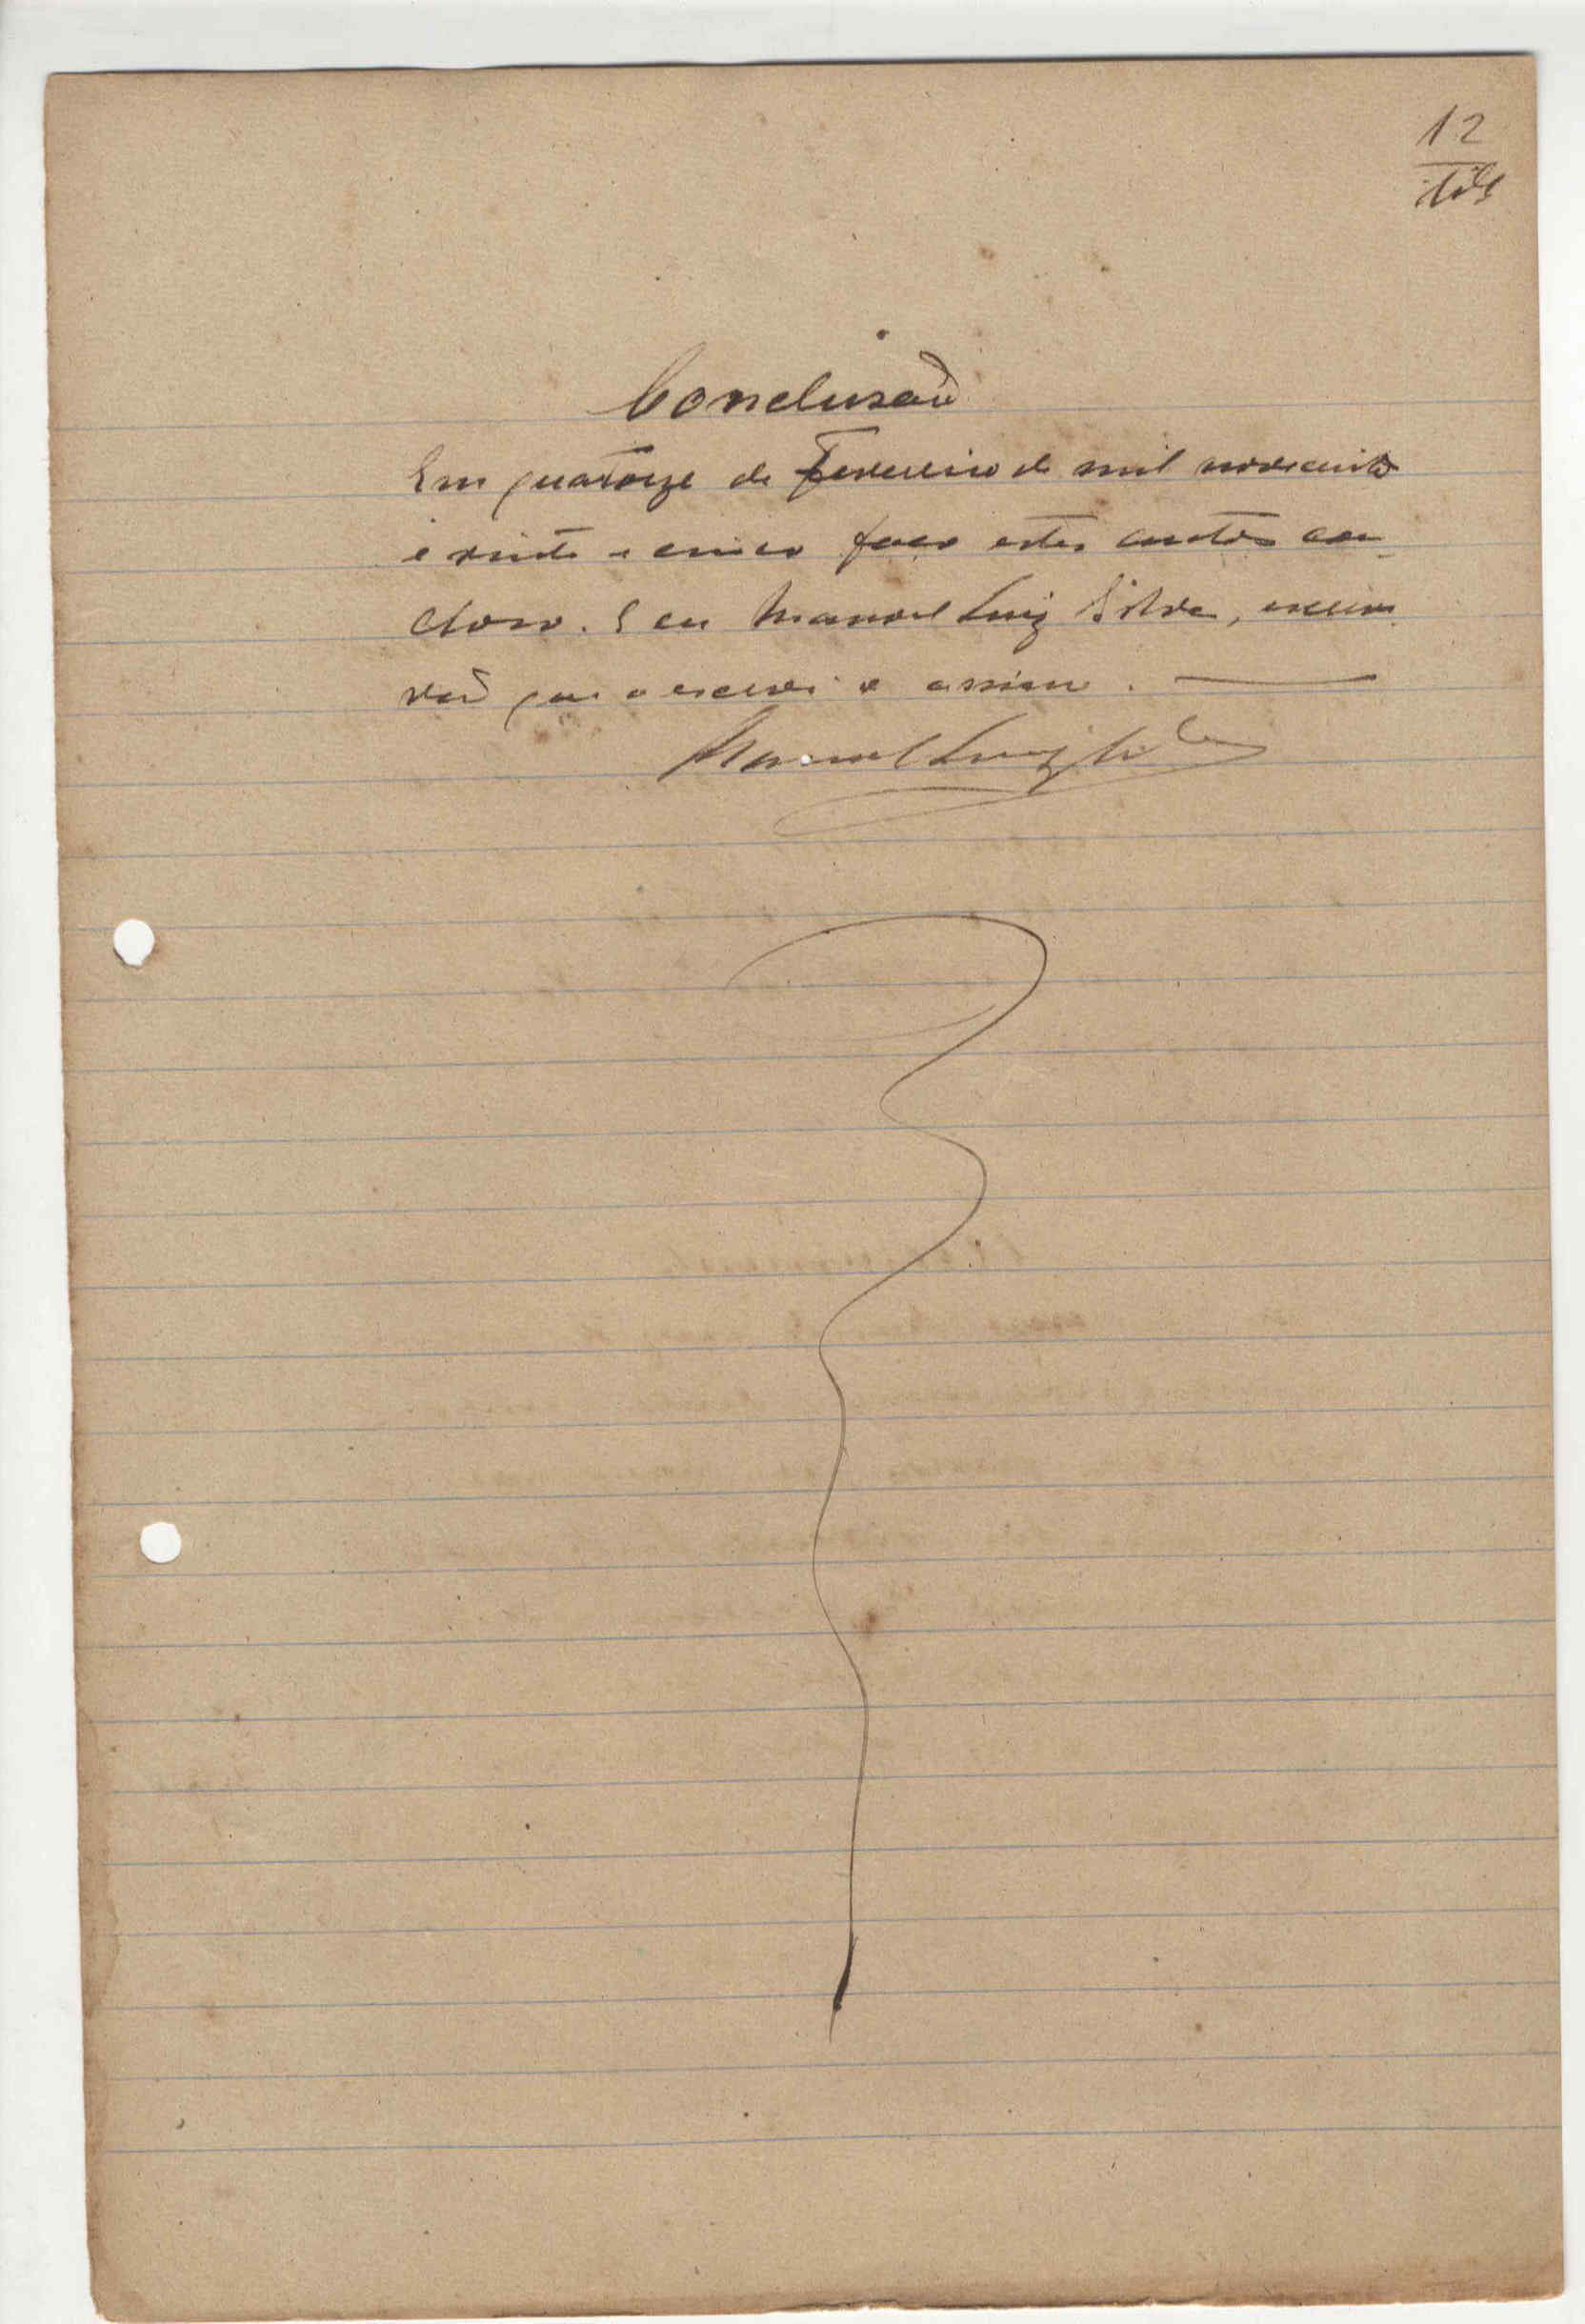 12
Conclusaõ
Em quatorze de Fevereiro de mil novecentos
e vinte e cinco faço estes autos con-
cluso. E eu Manoel Luiz Silva, escri
vaõ que o escrevi e assino.
Manoel Luiz Silva